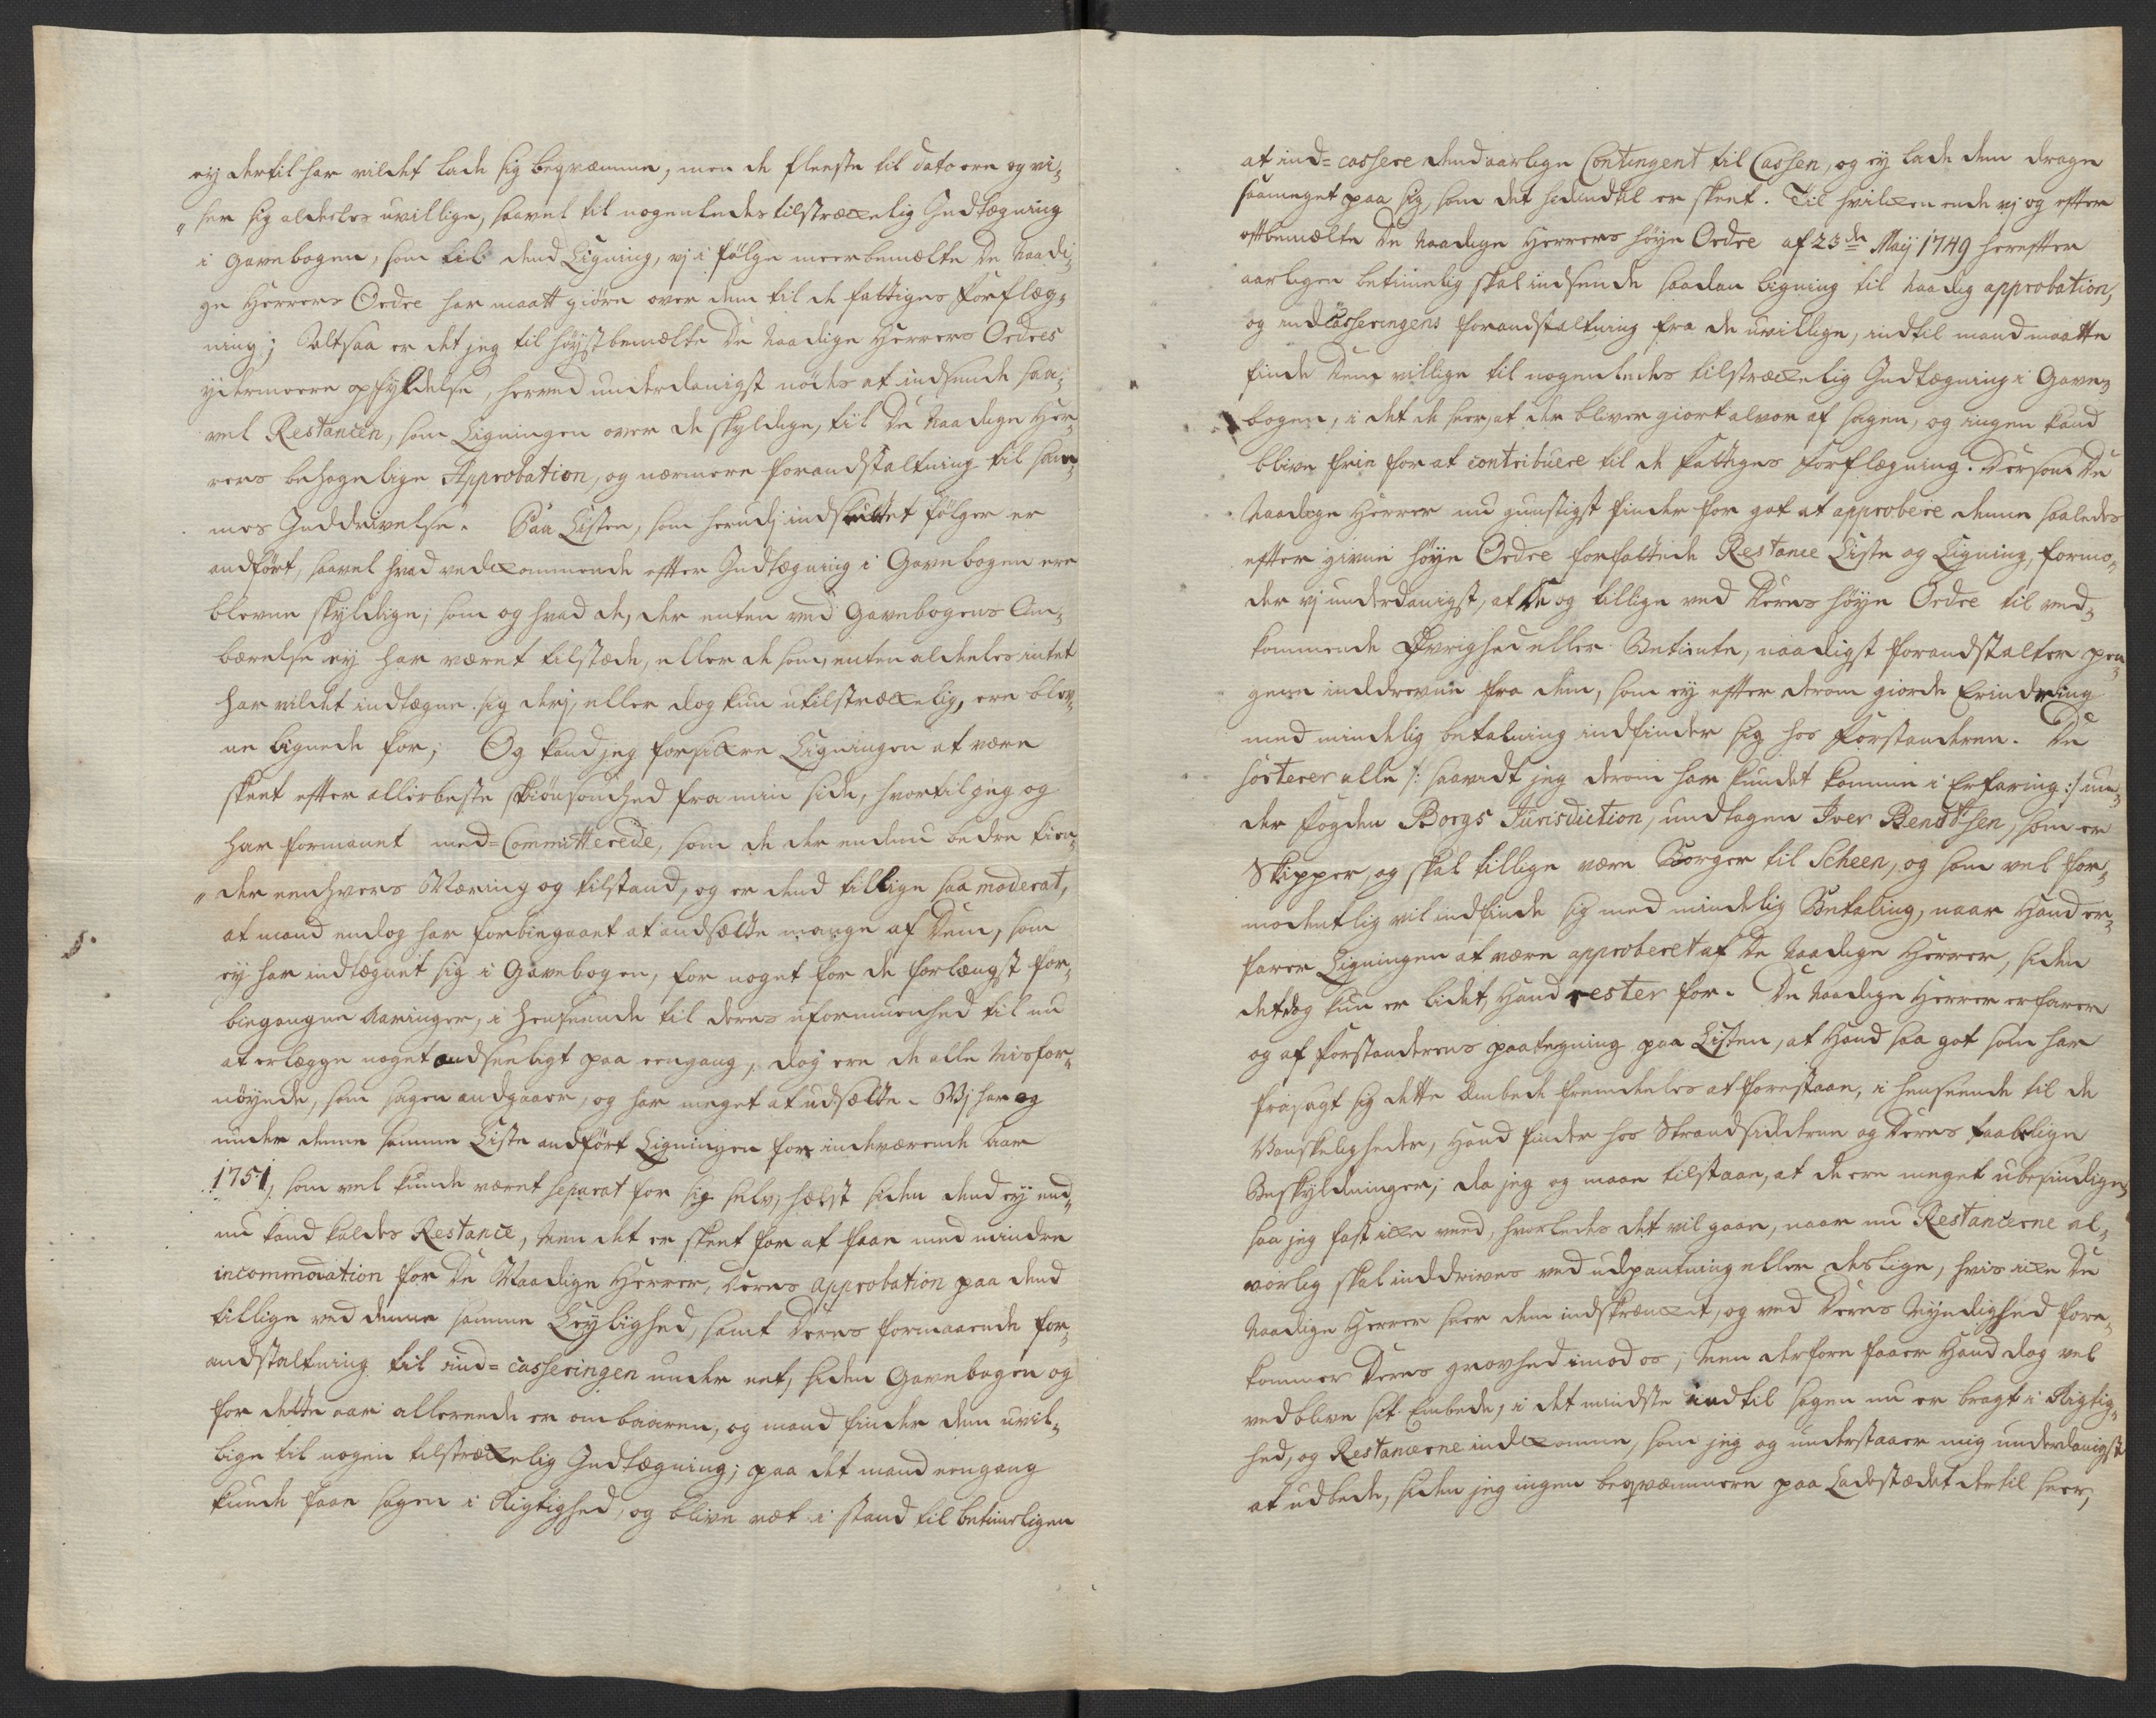 ey dertil har vildet lade sig beqvæmme, men de fleeste til dato ere og vi-
„ ser sig aldeeles uvillige, saavel til nogenledes tilstrækkelig Indtegning
i Gavebogen, som til dend Ligning, vj i følge meerbemælte De Naadi-
ge Herrers Ordre har maatt giøre over dem til de fattiges forflæg-
ning; Altsaa er det jeg til høystbemælte De Naadige Herrers Ordres
ydermeere opfyldelse, herved underdanigst nødes at indsende saa-
vel Restancen, som Ligningen over de skyldige, til De Naadige Her-
rers behagelige Approbation, og nærmere forandstaltning til sam-
mes Inddrivelse. Paa Listen, som herudj indsluttet følger er
andført, saavel hvad vedkommende efter Indtegning i Gavebogen ere
blevne skyldige; som og hvad de, der enten ved Gavebogens Om-
bærelse ey har været tilstæde, eller de som, enten aldeeles intet
har vildet indtegne sig derj, eller dog kun utilstrækkelig, ere blev-
ne lignede for; Og kand jeg forsikkre Ligningen at være
skeet efter allerbeste skiønsomhed fra min side, hvortil jeg og
har formanet med-Committerede, som de der endnu bedre kien-
„ der eenhvers Næring og tilstand, og er dend tillige saa moderat,
at mand endog har forbiegaaet at andsætte mange af Dem, som
ey har indtegnet sig i Gavebogen, for noget for de forlængst for-
biegangne Aaringer, i henseende til deres uformuenhed til nu
at erlægge noget andseeligt paa eengang, dog ere de alle Misfor-
nøyede, som sagen andgaaer, og har meget at udsætte. Vj har og
under denne samme Liste andført Ligningen for indeværende Aar
1751, som vel kunde været separat for sig selv, helst siden dend ey end-
nu kand kaldes Restance, men det er skeet for at faae med mindre
incommodation for De Naadige Herrer, Deres approbation paa dend
tillige ved denne samme Leylighed, samt Deres formaaende for-
andstaltning til ind-casseringen under eet, siden Gavebogen og
for dette aar allereede er ombaaren, og mand finder dem uvil-
lige til nogen tilstrækkelig Indtegning; paa det mand eengang
kunde faae sagen i Rigtighed, og blive ret i stand til betimeligen
at ind-cassere dend aarlige Contingent til Cassen, og ey lade dem drage
saameget paa sig, som det hidindtil er skeet. Til hvilken ende vj og efter
oftbemælte De Naadige Herrers høye Ordre af 23de Maij 1749 herefter
aarligen betimelig skal indsende saadan Ligning til naadig approbation,
og indcasseringens forandstaltning fra de uvillige, indtil mand maatte
finde Dem villige til nogenledes tilstrækkelig Indtegning i Gave-
bogen, i det de seer, at der bliver giort alvor af sagen, og ingen kand
blive frie for at contribuere til de fattiges forflægning. Dersom De
Naadige Herrer nu gunstigst finder for got at approbere denne saaledes
efter givne høye Ordre forfattede Restance Liste og Ligning, formo-
der vj underdanigst, at De og tillige ved Deres høye Ordre til ved-
kommende Øvrighed eller Betiente, naadigst forandstalter pen-
gene inddrevne fra dem, som ey efter derom giorde Erindring
med mindelig betalning indfinder sig hos Forstanderen. De
sorterer alle /: saavidt jeg derom har kundet komme i Erfaring :/ un-
der fogden Borgs Jurisdiction, undtagen Iver Bendtsen, som er
Skipper, og skal tillige være Borger til Scheen, og som vel for-
modentlig vil indfinde sig med mindelig Betaling, naar Hand er-
farer Ligningen at være approberet af De Naadige Herrer, siden
det dog kun er lidet, Hand rester for. De Naadige Herrer erfarer
og af Forstanderens paategning paa Listen, at Hand saa got som har
frasagt sig dette Embede fremdeeles at forestaae, i henseende til de
Vanskeligheder, Hand finder hos Strandsidderne og Deres taabelige
Beskyldninger; da jeg og maae tilstaae, at de ere meget ubesindige,
saa jeg fast ikke veed, hvorledes det vil gaae, naar nu Restancerne al-
vorlig skal inddrives ved udpantning eller deslige, hvis ikke De
Naadige Herrer seer dem indskrænket, og ved Deres Myndighed fore-
kommer Deres grovhed imod os; Men derfore faaer Hand dog vel
vedblive sit Embede, i det mindste indtil sagen nu er bragt i Rigtig-
hed, og Restancerne indkomne, som jeg og understaaer mig underdanigst
at udbede, siden jeg ingen beqvæmmere paa Ladestædet dertil seer,